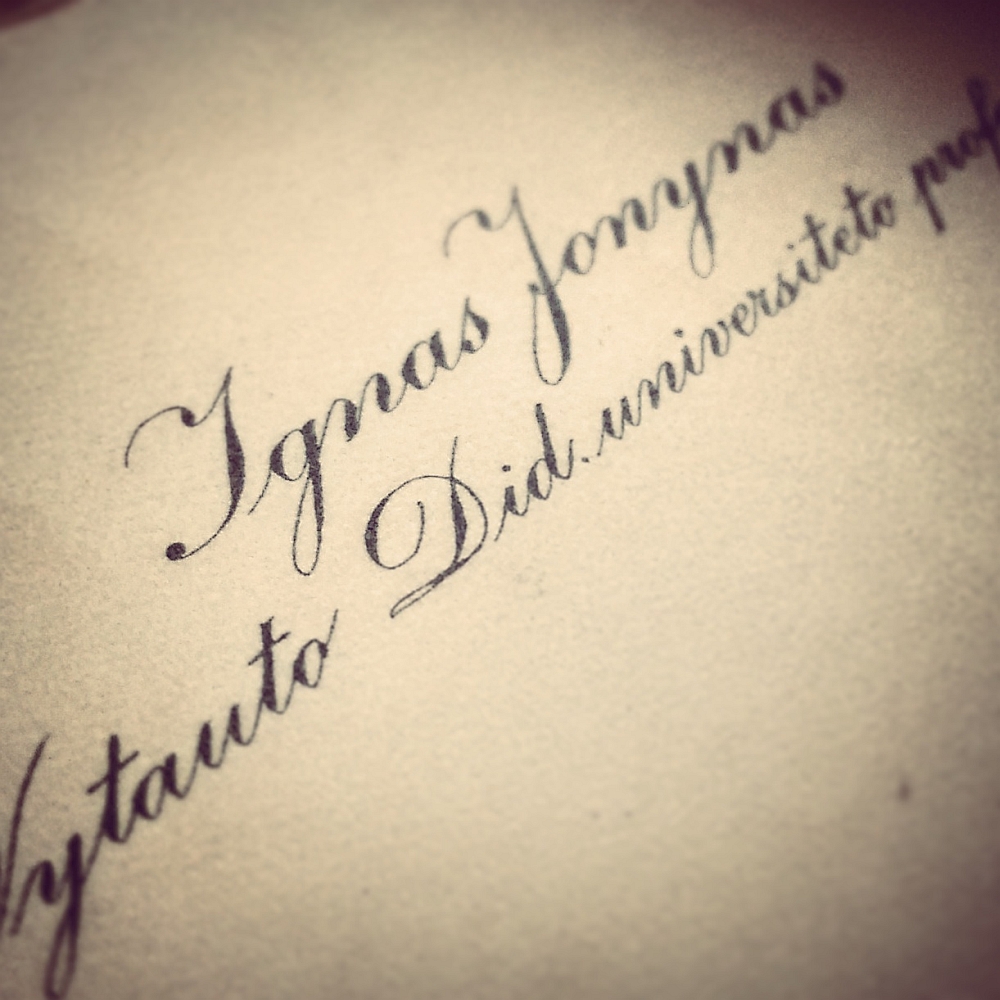 Ignas Jonynas
Vytauto Did. universiteto prof